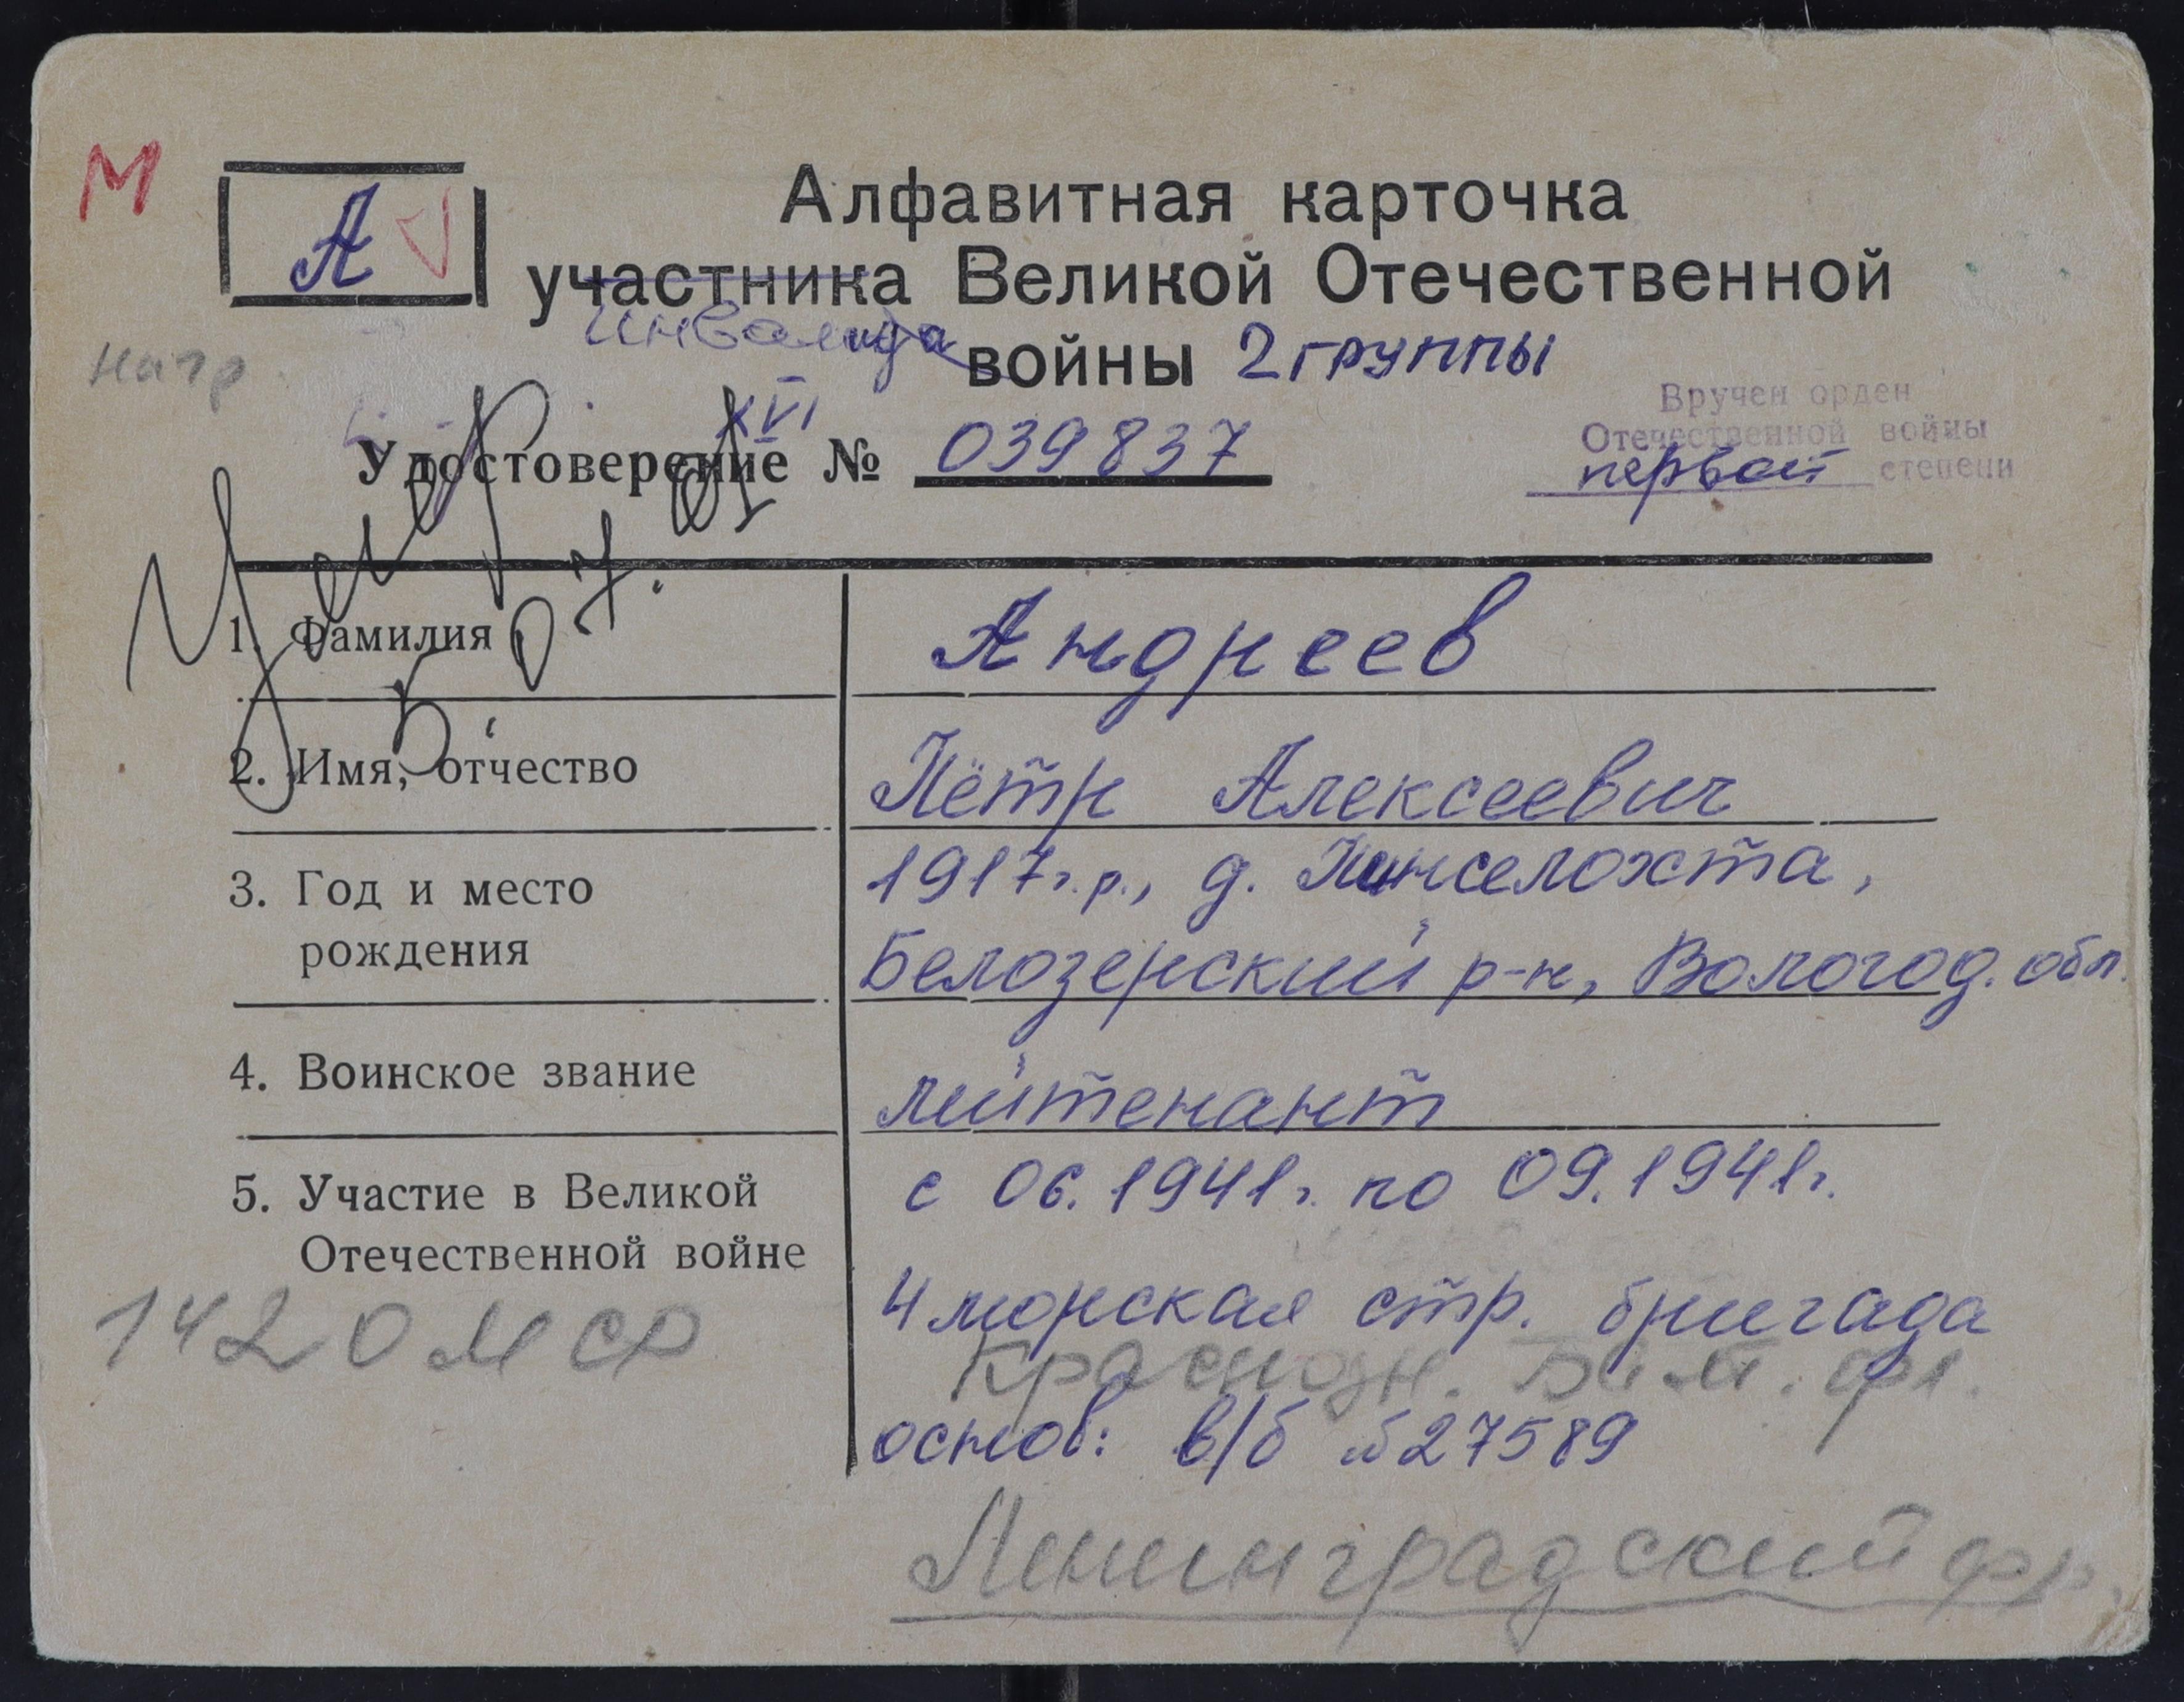 М
А
Алфавитная карточка
участника Великой Отечественной
инвалида
войны 2 группы
нагр
Вручен орден
Отечественной войны
первой степени
XVI
Удостоверение № 039837
Умер
07. 01
1. Фамилия Андреев
2. Имя, отчество Пётр Алексеевич
3. Год и место рождения 1917г.р., д.
Белозерский р-н, Вологод. обл.
4. Воинское звание лейтенант
5. Участие в Великой Отечественной войне с 06.1941г. по 09.1941г.
4 морская стр. бригада
1420 МСО
Краснозн. Балт. фл.
основ: в/б №27589
Ленинградский фр.